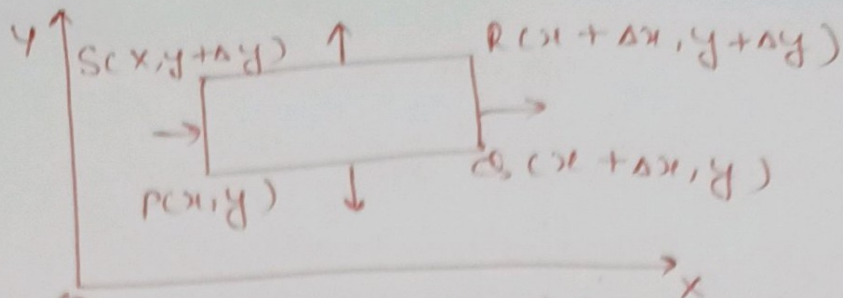 y
S(x,y+Δy)
R(x+Δx,y+Δy)
P(x,y)
Q(x+Δx,y)
x